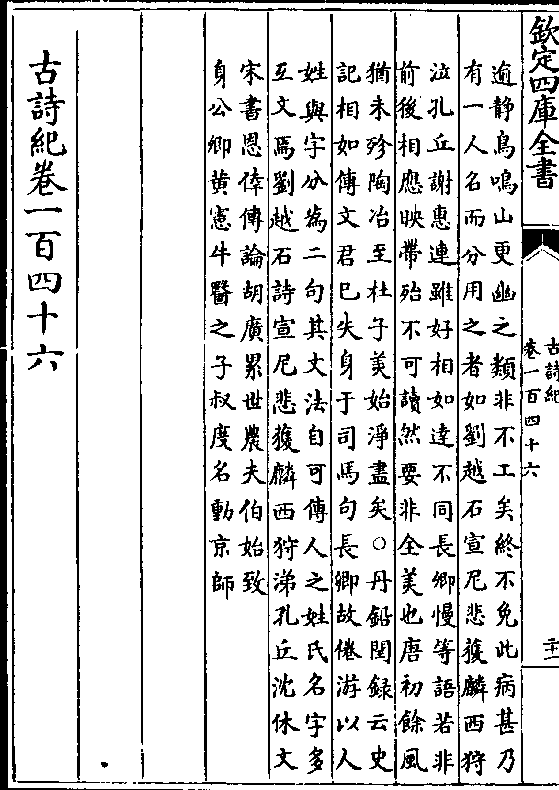 欽定四庫全書
古詩紀
卷一百四十六
二十一
逾静鳥鳴山更幽之類非不工矣終不免此病甚乃
有一人名而分用之者如劉越石宣尼悲獲麟西狩
泣孔丘謝惠連雖好相如達不同長卿慢等語若非
前後相應映帶殆不可讀然要非全美也唐初餘風
猶未殄陶冶至杜子美始淨盡矣○丹鉛閏録云史
記相如傳文君已失身于司馬句長卿故倦游以人
姓與字分為二句其文法自可傳人之姓氏名字多
互文焉劉越石詩宣尼悲獲麟西狩涕孔丘沈休文
宋書恩倖傳論胡廣累世農夫伯始致
身公卿黄憲牛醫之子叔度名動京師
古詩紀卷一百四十六